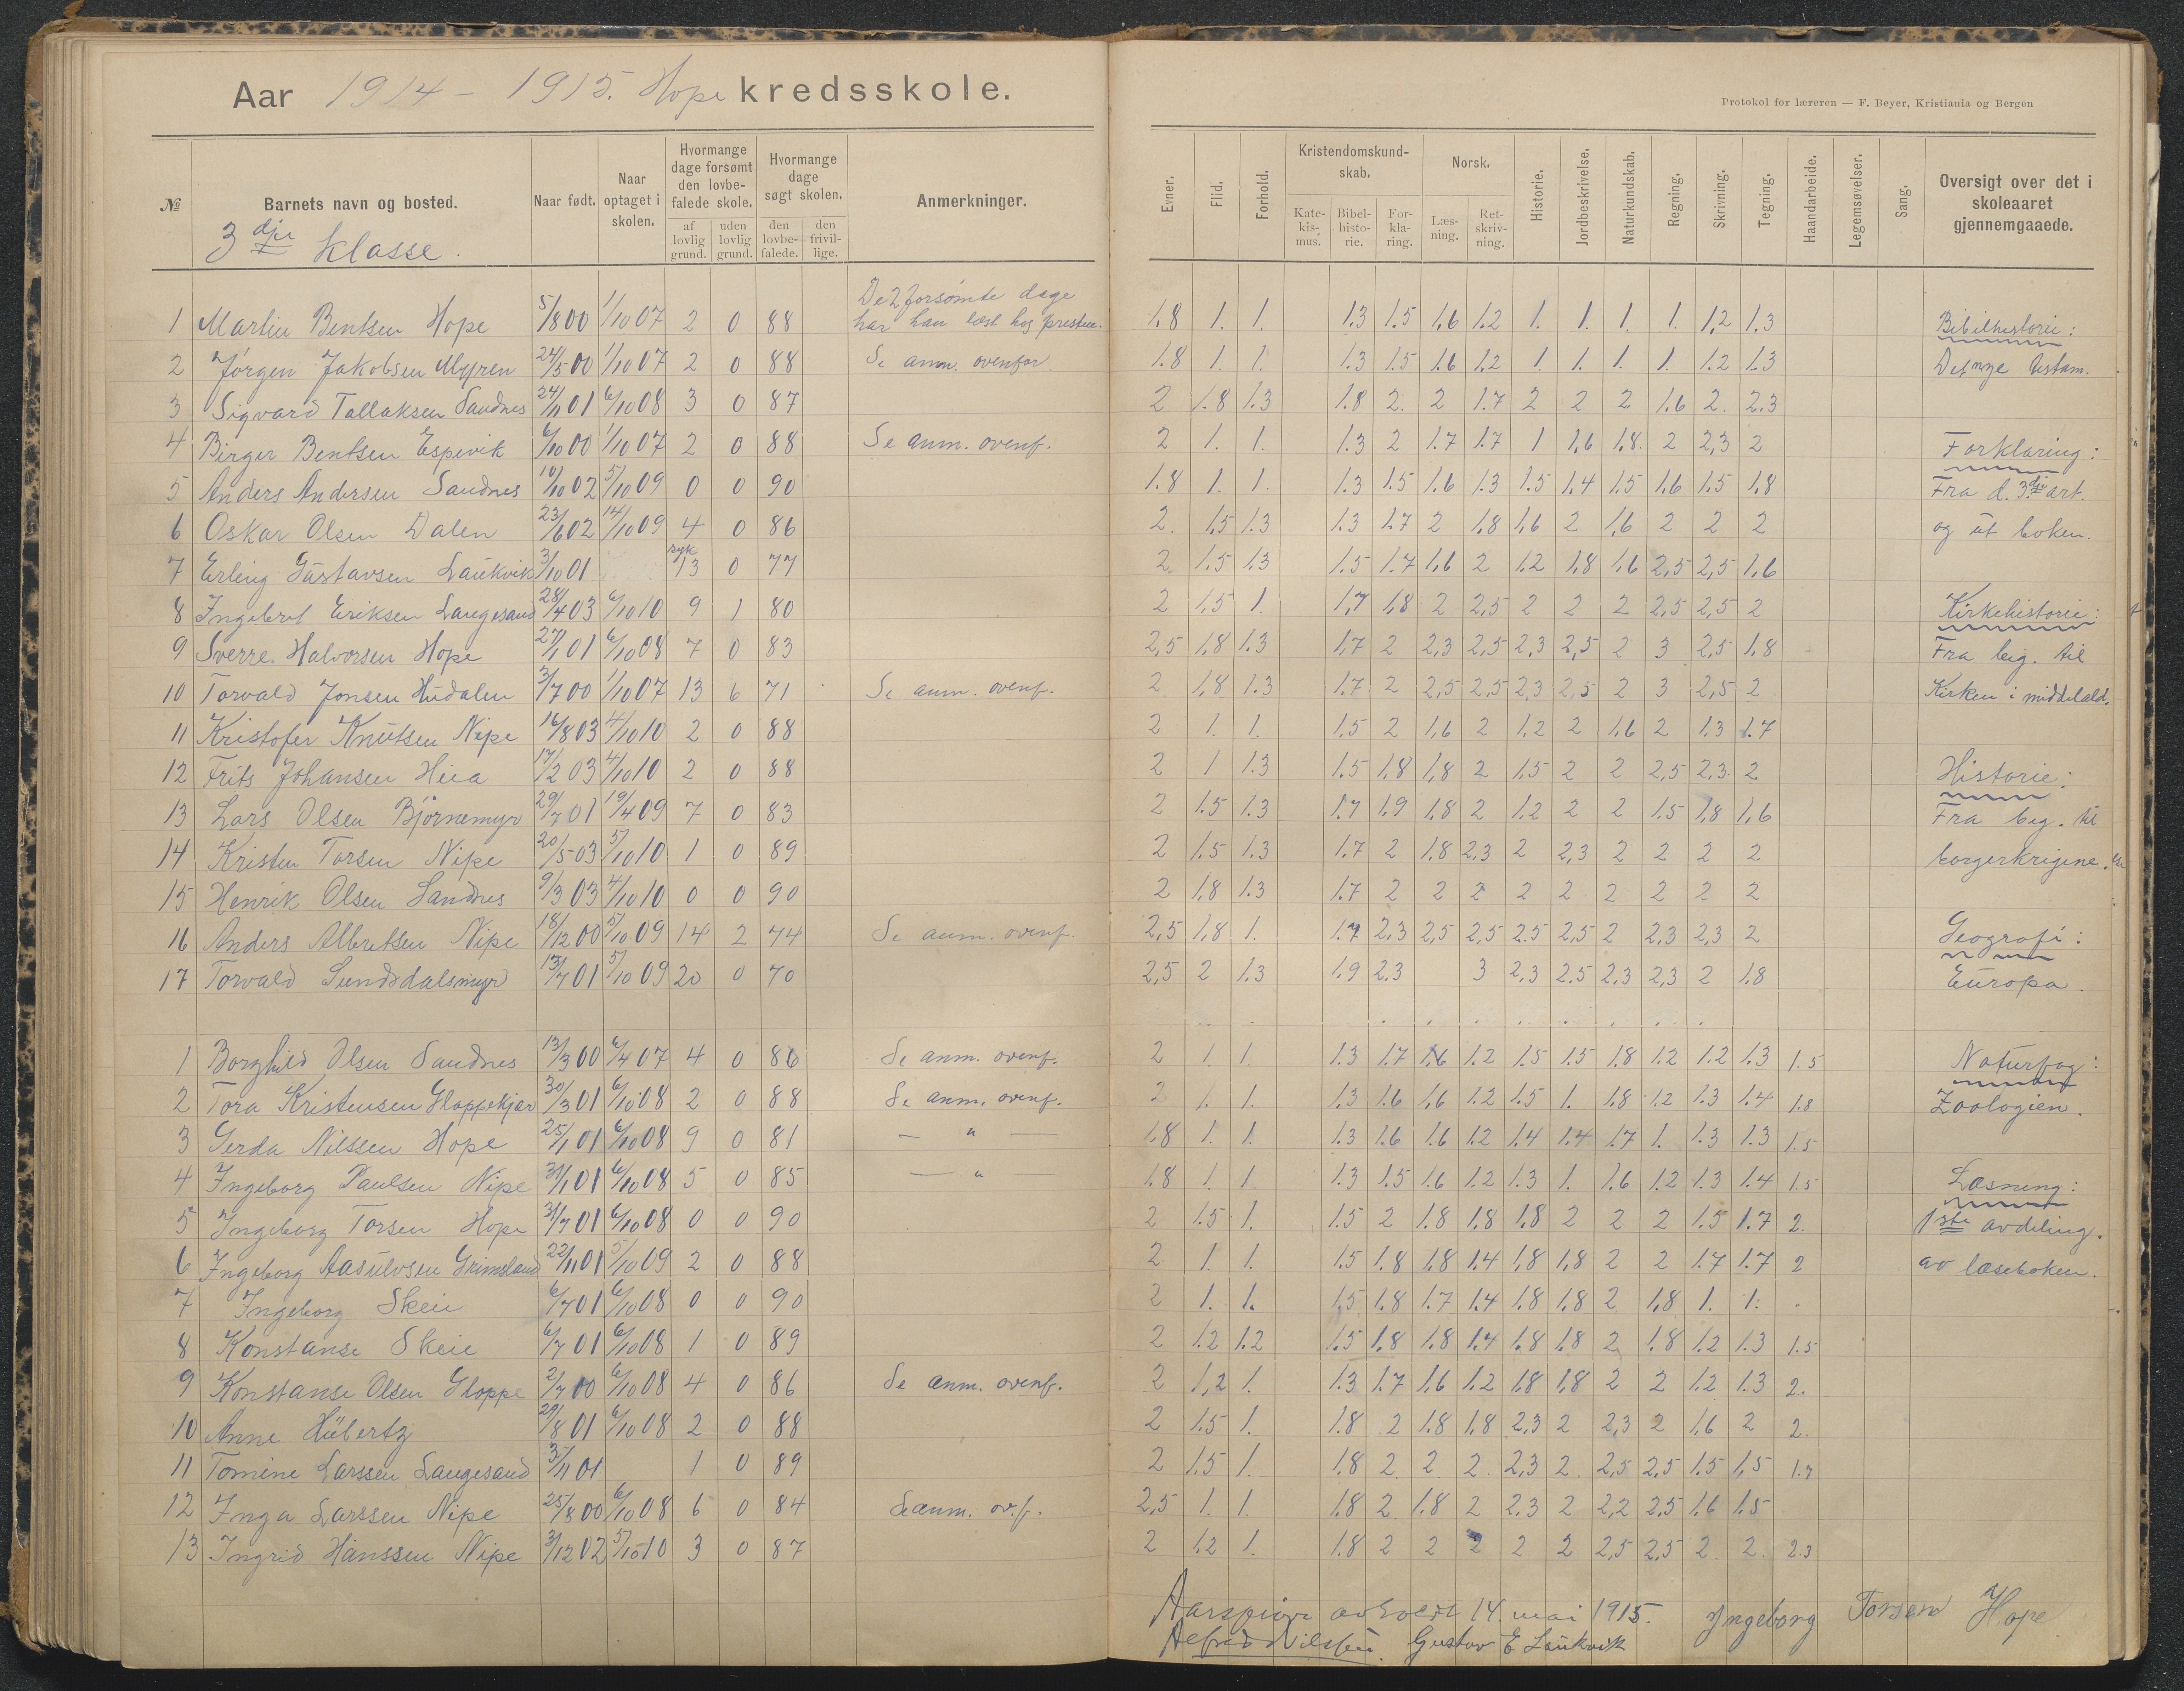 Aar 1914 - 1915. Hope kredsskole.
Protokol for læreren — F. Beyer, Kristiania og Bergen
№ Barnets navn og bosted. Naar født. Naar optaget i skolen. Hvormange dage forsømt den lovbefalede skole. af lovlig grund. uden lovlig grund. Hvormange dage søgt skolen. den lovbefalede. den frivillige. Anmerkninger. Evner. Flid. Forhold. Kristendomskundskab. Katekismus. Bibelhistorie. Forklaring. Norsk. Læsning. Retskrivning. Historie. Jordbeskrivelse. Naturkundskab. Regning. Skrivning. Tegning. Haandarbeide. Legemsøvelser. Sang. Oversigt over det i skoleaaret gjennemgaaede.
3dje klasse.
1 Martin Bentsen Hope 5/8 00 1/10 07 2 0 88 De 2 forsømte dage har han læst hos presten. 1,8 1. 1. 1.3 1.5 1,6 1.2 1. 1. 1. 1. 1,2 1.3 Bibelhistorie:
2 Jørgen Jakobsen Myren 24/5 00 1/10 07 2 0 88 Se anm. ovenfor 1.8 1. 1. 1.3 1.5 1.6 1,2 1. 1. 1. 1. 1.2 1.3 Det nye testam.
3 Sigvard Tallaksen Sandnes 24/11 01 6/10 08 3 0 87 2 1.8 1.3 1.8 2. 2 1.7 2 2 2 1.6 2. 2.3
4 Birger Bentsen Espevik 6/10 00 1/10 07 2 0 88 Se anm. ovenf. 2 1. 1. 1.3 2 1.7 1.7 1 1,6 1,8. 2 2,3 2 Forklaring:
5 Anders Andersen Sandnes 10/10 02 5/10 09 0 0 90 1.8 1. 1. 1.3 1.5 1.6 1.3 1.5 1.4 1.5 1.6 1.5 1.8 Fra d. 3dje art.
6 Oskar Olsen Dalen 23/6 02 14/10 09 4 0 86 2. 1,5 1.3 1.3 1.7 2 1.8 1,6 2 1,6 2 2 2 og ut boken.
7 Erling Gustavsen Laukvik 3/10 01 syk 13 0 77 2 1.5 1.3 1.5 1.7 1,6 2 1.2 1.8 1.6 2,5 2,5 1,6
8 Ingebret Eriksen Langesand 28/4 03 6/10 10 9 1 80 2 1,5 1. 1,7 1,8 2 2,5 2 2 2 2,5 2,5 2 Kirkehistorie:
9 Sverre Halvorsen Hope 27/1 01 6/10 08 7 0 83 2,5 1,8 1.3 1,7 2 2,3 2,5 2,3 2,5 2 3 2,5 1,8 Fra beg. til
10 Torvald Jonsen Hudalen 3/7 00 1/10 07 13 6 71 Se anm. ovenf. 2 1,8 1.3 1.7 2 2,5 2,5 2,3 2,5 2 3 2,5 2 Kirken i middelald.
11 Kristofer Knutsen Nipe 16/8 03 4/10 10 2 0 88 2 1. 1. 1,5 2 1,6 2 1,2 2 1,6 2 1.3 1.7
12 Frits Johansen Hiia 17/2 03 4/10 10 2 0 88 2 1 1.3 1.5 1,8 1,8 2 1,5 2 2 2,5 2,3. 2 Historie:
13 Lars Olsen Bjørnemyr 29/7 01 19/4 09 7 0 83 2 1.5 1.3 1.7 1,9 1.8 2 1.2 2 2 1.5 1,8 1,6 Fra beg. til
14 Kristen Torsen Nipe 20/5 03 5/10 10 1 0 89 2 1.5 1.3 1.7 2 1.8 2,3 2 2,3 2 2 2 2 borgerkrigene.
15 Henrik Olsen Sandnes 9/3 03 4/10 10 0 0 90 2 1,8 1.3 1.7 2 2 2 2 2 2 2 2 2
16 Anders Albretsen Nipe 18/12 00 5/10 09 14 2 74 Se anm. ovenf. 2,5 1,8 1. 1.7 2,3 2,5 2,5 2.5 2,5 2 2,3 2,3 2 Geografi:
17 Torvald Sundsdalsmyr 13/7 01 5/10 09 20 0 70 2,5 2 1.3 1.9 2.3 3 2,3 2.5 2,3 2,3 2 1.8 Europa.
1 Borghild Olsen Sandnes 13/3 00 6/4 07 4 0 86 Se anm. ovenf. 2 1. 1. 1.3 1.7 1.6 1.2 1.5 1.5 1.8 1.2 1.2 1.3 1.5 Naturfag:
2 Tora Kristensen Gloppekjær 30/3 01 6/10 08 2 0 88 Se anm. ovenf. 2 1. 1. 1.3 1.6 1,6 1.2 1.5 1. 1.8 1.2 1.3 1.4 1.8 Zoologien.
3 Gerda Nilssen Hope 25/1 01 6/10 08 9 0 81 — " — 1,8 1. 1. 1.3 1.6 1.6 1.2 1.4 1.4 1.7 1. 1.3 1.3 1.5
4 Ingeborg Paulsen Nipe 31/1 01 6/10 08 5 0 85 — " 1.8 1. 1. 1.3 1.5 1.6 1.2 1.3 1. 1.6 1.2 1.3 1.4 1.5 Læsning:
5 Ingeborg Torsen Hope 31/7 01 6/10 08 0 0 90 2 1.5 1. 1.5 2 1.8 1,8 1,8 2 2 2 1.5 1.7 2. 1ste avdeling.
6 Ingeborg Aasulvsen Grimsland 22/11 01 5/10 09 2 0 88 2 1. 1. 1.5 1.8 1.8 1.4 1,8 1,8 2 2 1.7 1.7 2 av læseboken.
7 Ingeborg Skeie 6/7 01 6/10 08 0 0 90 2 1. 1. 1.5 1.8 1.7 1.4 1.8 1,8 2 1,8 1. 1.
8 Konstanse Skeie 6/7 01 6/10 08 1 0 89 2 1.2 1.2 1.5 1.8 1.8 1.4 1.8 1.8 2 1.8 1.2 1.3 1.5
9 Konstanse Olsen Gloppe 2/7 00 6/10 08 4 0 86 Se anm. ovenf. 2 1,2 1. 1.3 1.7 1,6 1.2 1,8 1,8 2 2 1.2 1.3 2.
10 Anne Hübertz 29/8 01 6/10 08 2 0 88 2 1.5 1. 1.8 2 1.8 1.8 2,3 2 2,3 2 1,6 2 2.
11 Tomine Larssen Langesand 3/11 01 1 0 89 2 1.5 1. 1.8 2 2 2 2,3 2 2,5 2,5 1.5 1,5 1.7
12 Inga Larssen Nipe 25/8 00 6/10 08 6 0 84 Se anm. ov.f. 2,5 1. 1. 1.8 2 1.8 2 2.3 2 2,2 2.5 1.6 1.5
13 Ingrid Hanssen Nipe 3/12 02 5/10 10 3 0 87 2 1.2 1. 1.8 2 2 2 2 2 2,5 2,5 2 2. 2.3
Aarsprøve avholdt 14. mai 1915. Ingeborg Torsen Hope
Alfred Nilssen. Gustav E Laukvik